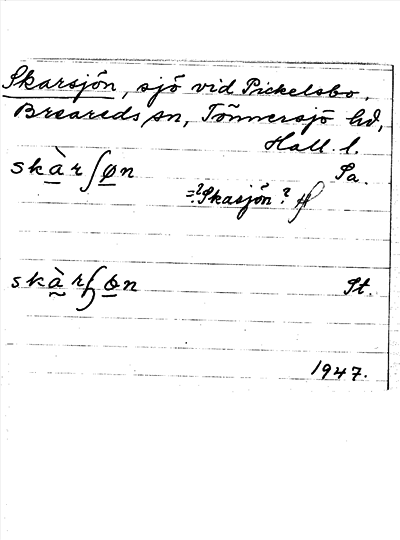 Skarsjön, sjö vid Pickelsbo,
Breareds sn, Tönnersjö hd,
Hall. l.
skàrʃøn Pa.
=? Skasjön?
skàrʃøn St.
1947.